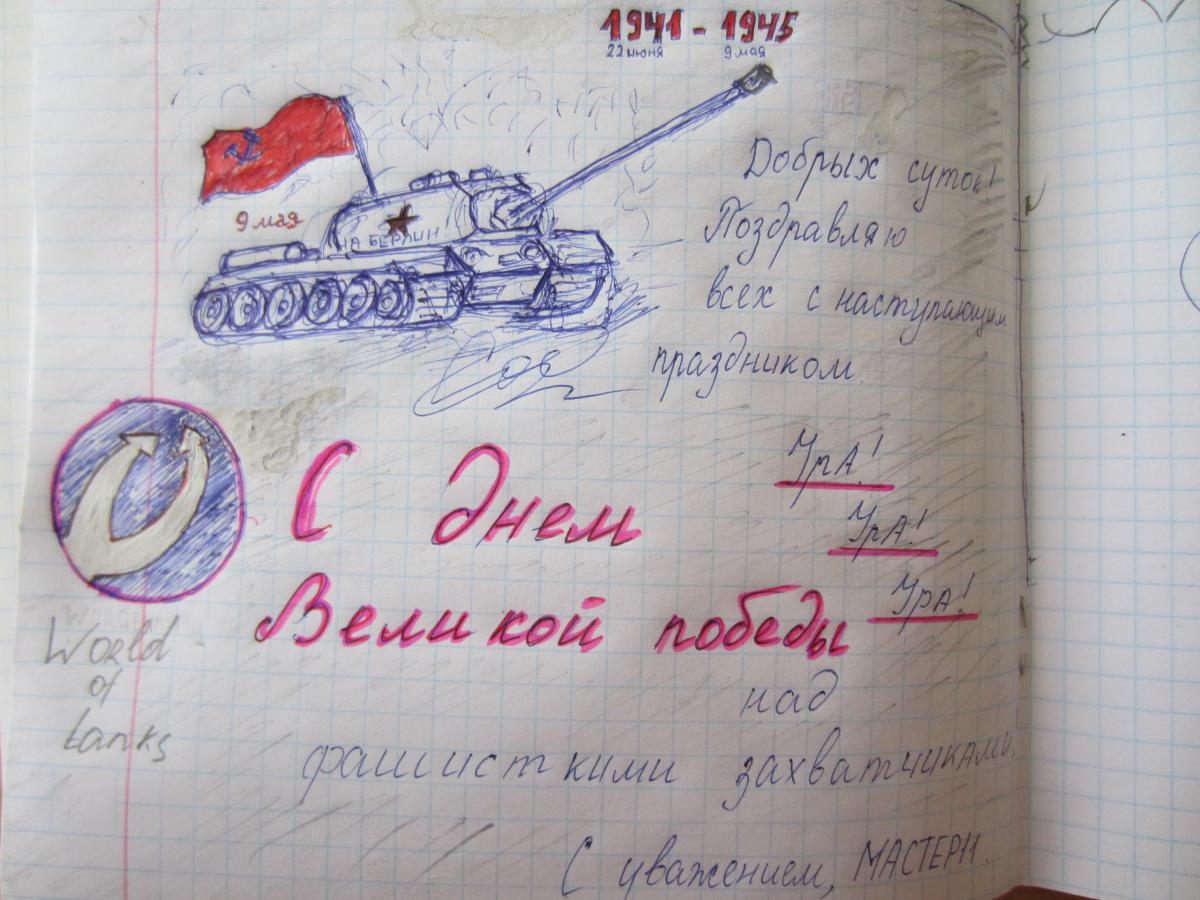 1941 - 1945
22 июня 9 мая
9 мая
НА БЕРЛИН!
Добрых суток!
Поздравляю
всех с наступающим
праздником.
УрА!
С Днем
УрА!
УрА!
Великой победы
над
фашисткими захватчиками.
World
of
tanks
С уважением,